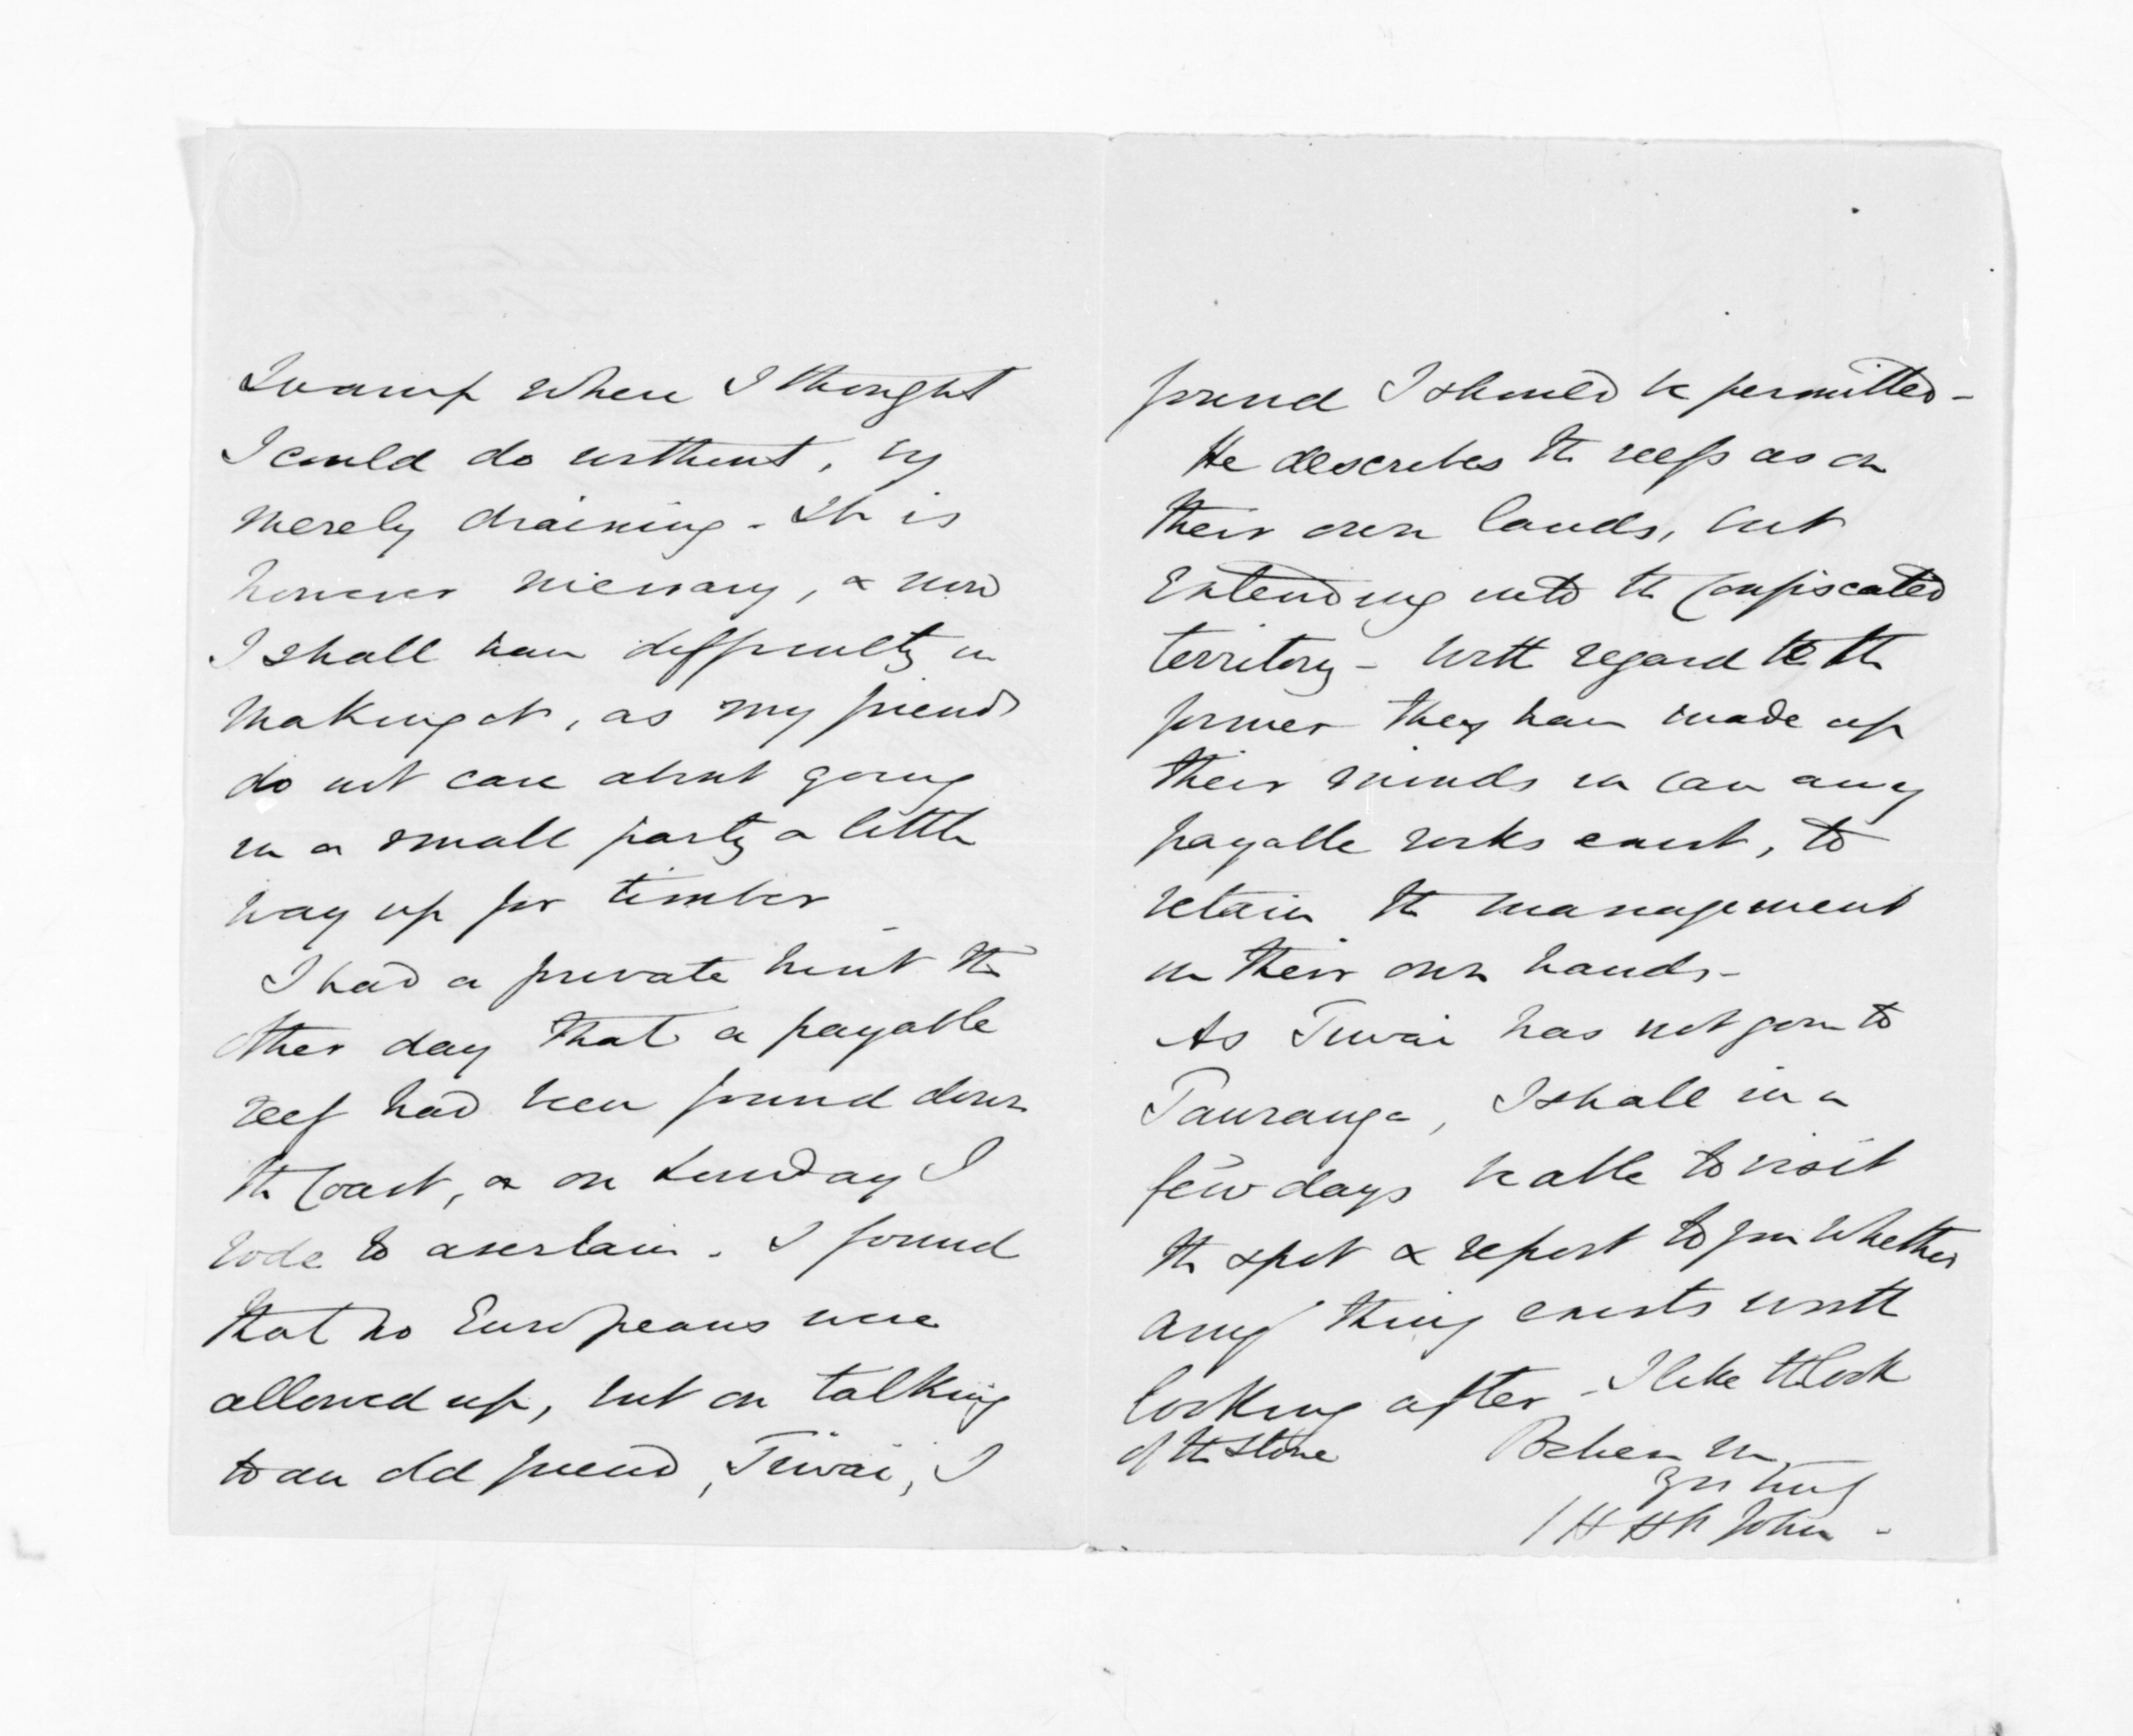 Swamp where I thought
I could do without, by
merely draining - It is
however necessary, & now
I shall have difficulty in
making it, as my friends
do not care about going
in a small party a little
way up for timber -
I had a private hint the
other day that a payable
reef had been found down
the Coast, & on Sunday I
rode to ascertain. I found
that no Europeans were
allowed up, but on talking
to an old friend, Tiwai, I
found I should be permitted -
He describes the reefs as on
their own lands, but
Extending into the Confiscated
territory - With regard to the
former they have made up
their minds in case any
payable rocks exist, to
retain the management
in their own hands -
As Tiwai has not gone to
Tauranga, I shall in a
few days be able to visit
the spot & report to you whether
any thing exists worth
looking after - I like the look
of the stone
Believe me
Yrs truly
J H H St John -